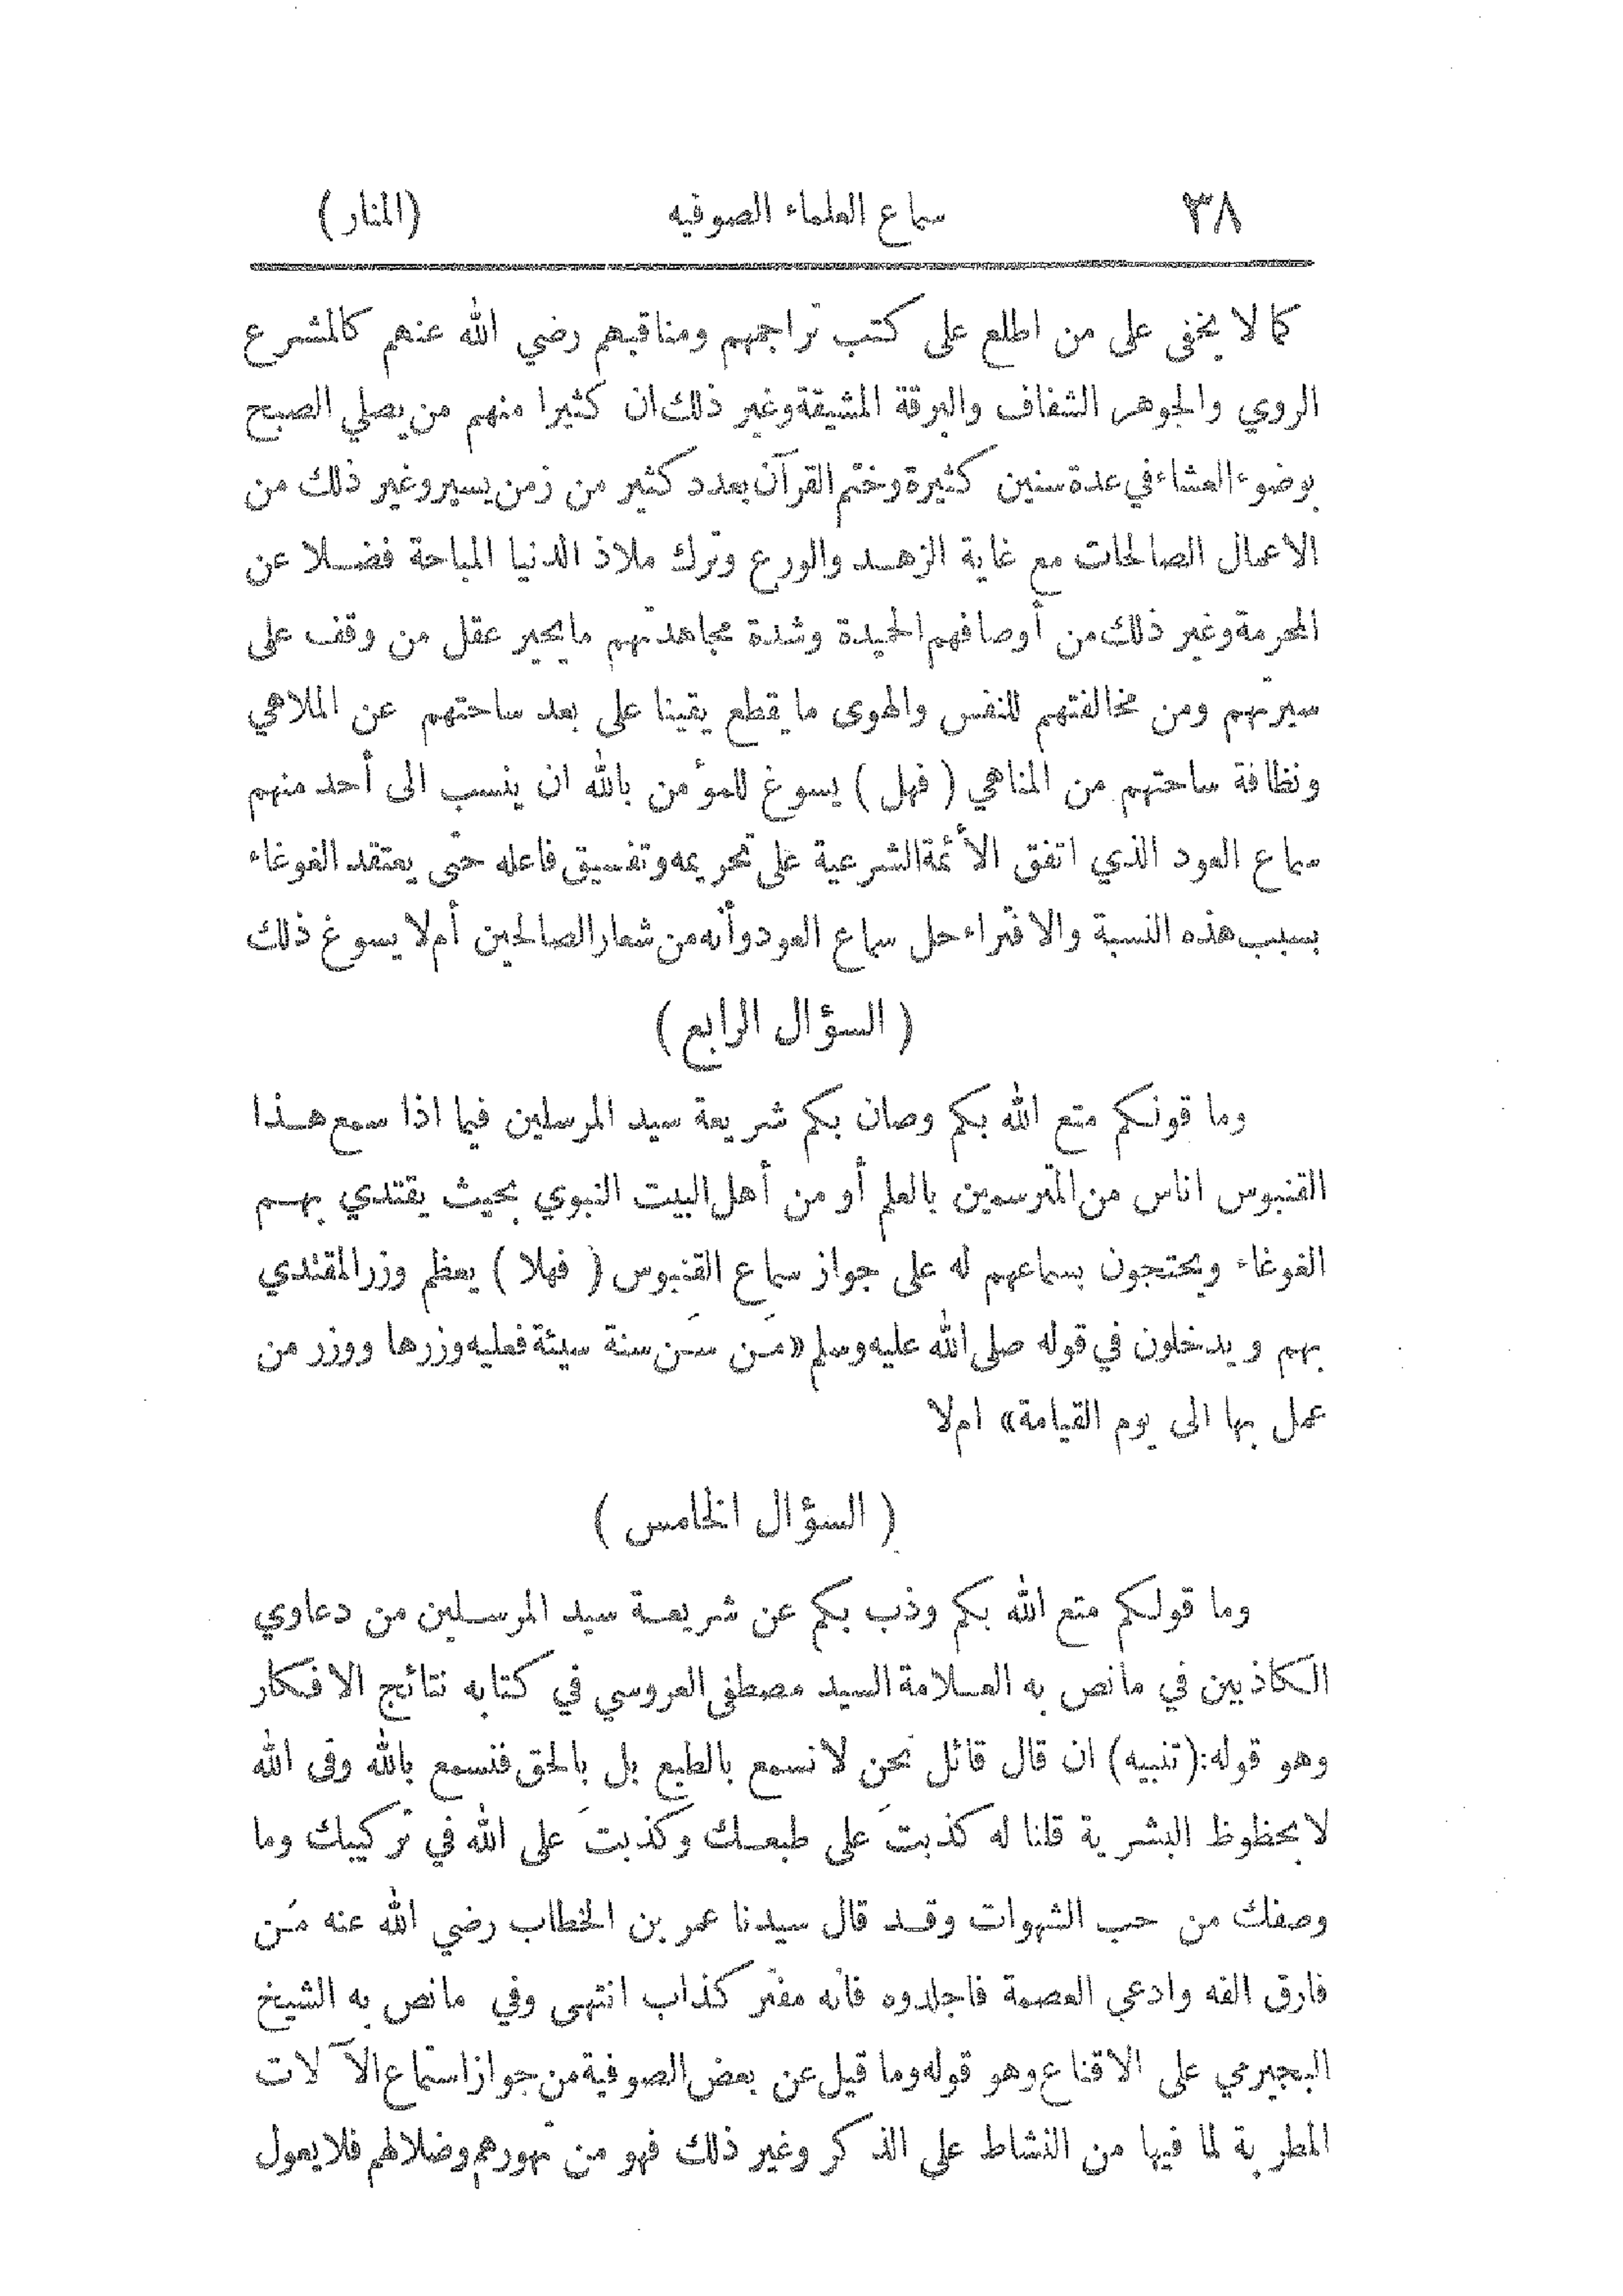 ٣٨
سماع العلماء الصوفيه
(المنار)
كما لا يخفى على من اطلع على كتب تراجمهم ومناقبهم رضي الله عنهم كالمشرع
الروي والجوهر الشفاف والبرقة المشيقة وغير ذلك ان كثيرا منهم من يصلي الصبح
بوضوء العشاء في عدة سنين كثيرة وختم القرآن بعدد كثير من زمن يسير وغير ذلك من
الاعمال الصالحات مع غاية الزهد والورع وترك ملاذ الدنيا المباحة فضلا عن
المحرمة وغير ذلك من أوصافهم الحميدة وشدة مجاهدتهم ما يحير عقل من وقف على
سيرتهم ومن مخالفتهم للنفس والهوى ما يقطع يقينا على بعد ساحتهم عن الملاهي
ونظافة ساحتهم من المناهي ( فهل ) يسوغ للمؤمن بالله ان ينسب الى أحد منهم
سماع العود الذي اتفق الأئمة الشرعية على تحريمه وتفسيق فاعله حتى يعتقد الغوغاء
بسبب هذه النسبة والافتراء حل سماع العود وأنه من شعار الصالحين أم لا يسوغ ذلك
( السؤال الرابع )
وما قولكم متع الله بكم وصان بكم شريعة سيد المرسلين فيما اذا سمع هذا
القنبوس اناس من المترسمين بالعلم أو من أهل البيت النبوي بحيث يقتدي بهم
الغوغاء ويحتجون بسماعهم له على جواز سماع القنبوس ( فهلا ) يعظم وزر المقتدي
بهم ويدخلون في قوله صلى الله عليه وسلم «مَن سَن سنة سيئة فعليه وزرها ووزر من
عمل بها الى يوم القيامة» ام لا
( السؤال الخامس )
وما قولكم متع الله بكم وذب بكم عن شريعة سيد المرسلين من دعاوي
الكاذبين في ما نص به العلامة السيد مصطفى العروسي في كتابه نتائج الافكار
وهو قوله: (تنبيه) ان قال قائل نحن لا نسمع بالطبع بل بالحق فنسمع بالله وفى الله
لا بحظوظ البشرية قلنا له كذبتَ على طبعك وكذبتَ على الله في تركيبك وما
وصفك من حب الشهوات وقد قال سيدنا عمر بن الخطاب رضي الله عنه مَن
فارق الفه وادعي العصمة فاجلدوه فانه مفتر كذاب انتهى وفي ما نص به الشيخ
البجيرمي على الاقناع وهو قوله وما قيل عن بعض الصوفية من جواز استماع الآلات
المطربة لما فيها من النشاط على الذكر وغير ذلك فهو من تهورهم وضلالهم فلا يعول